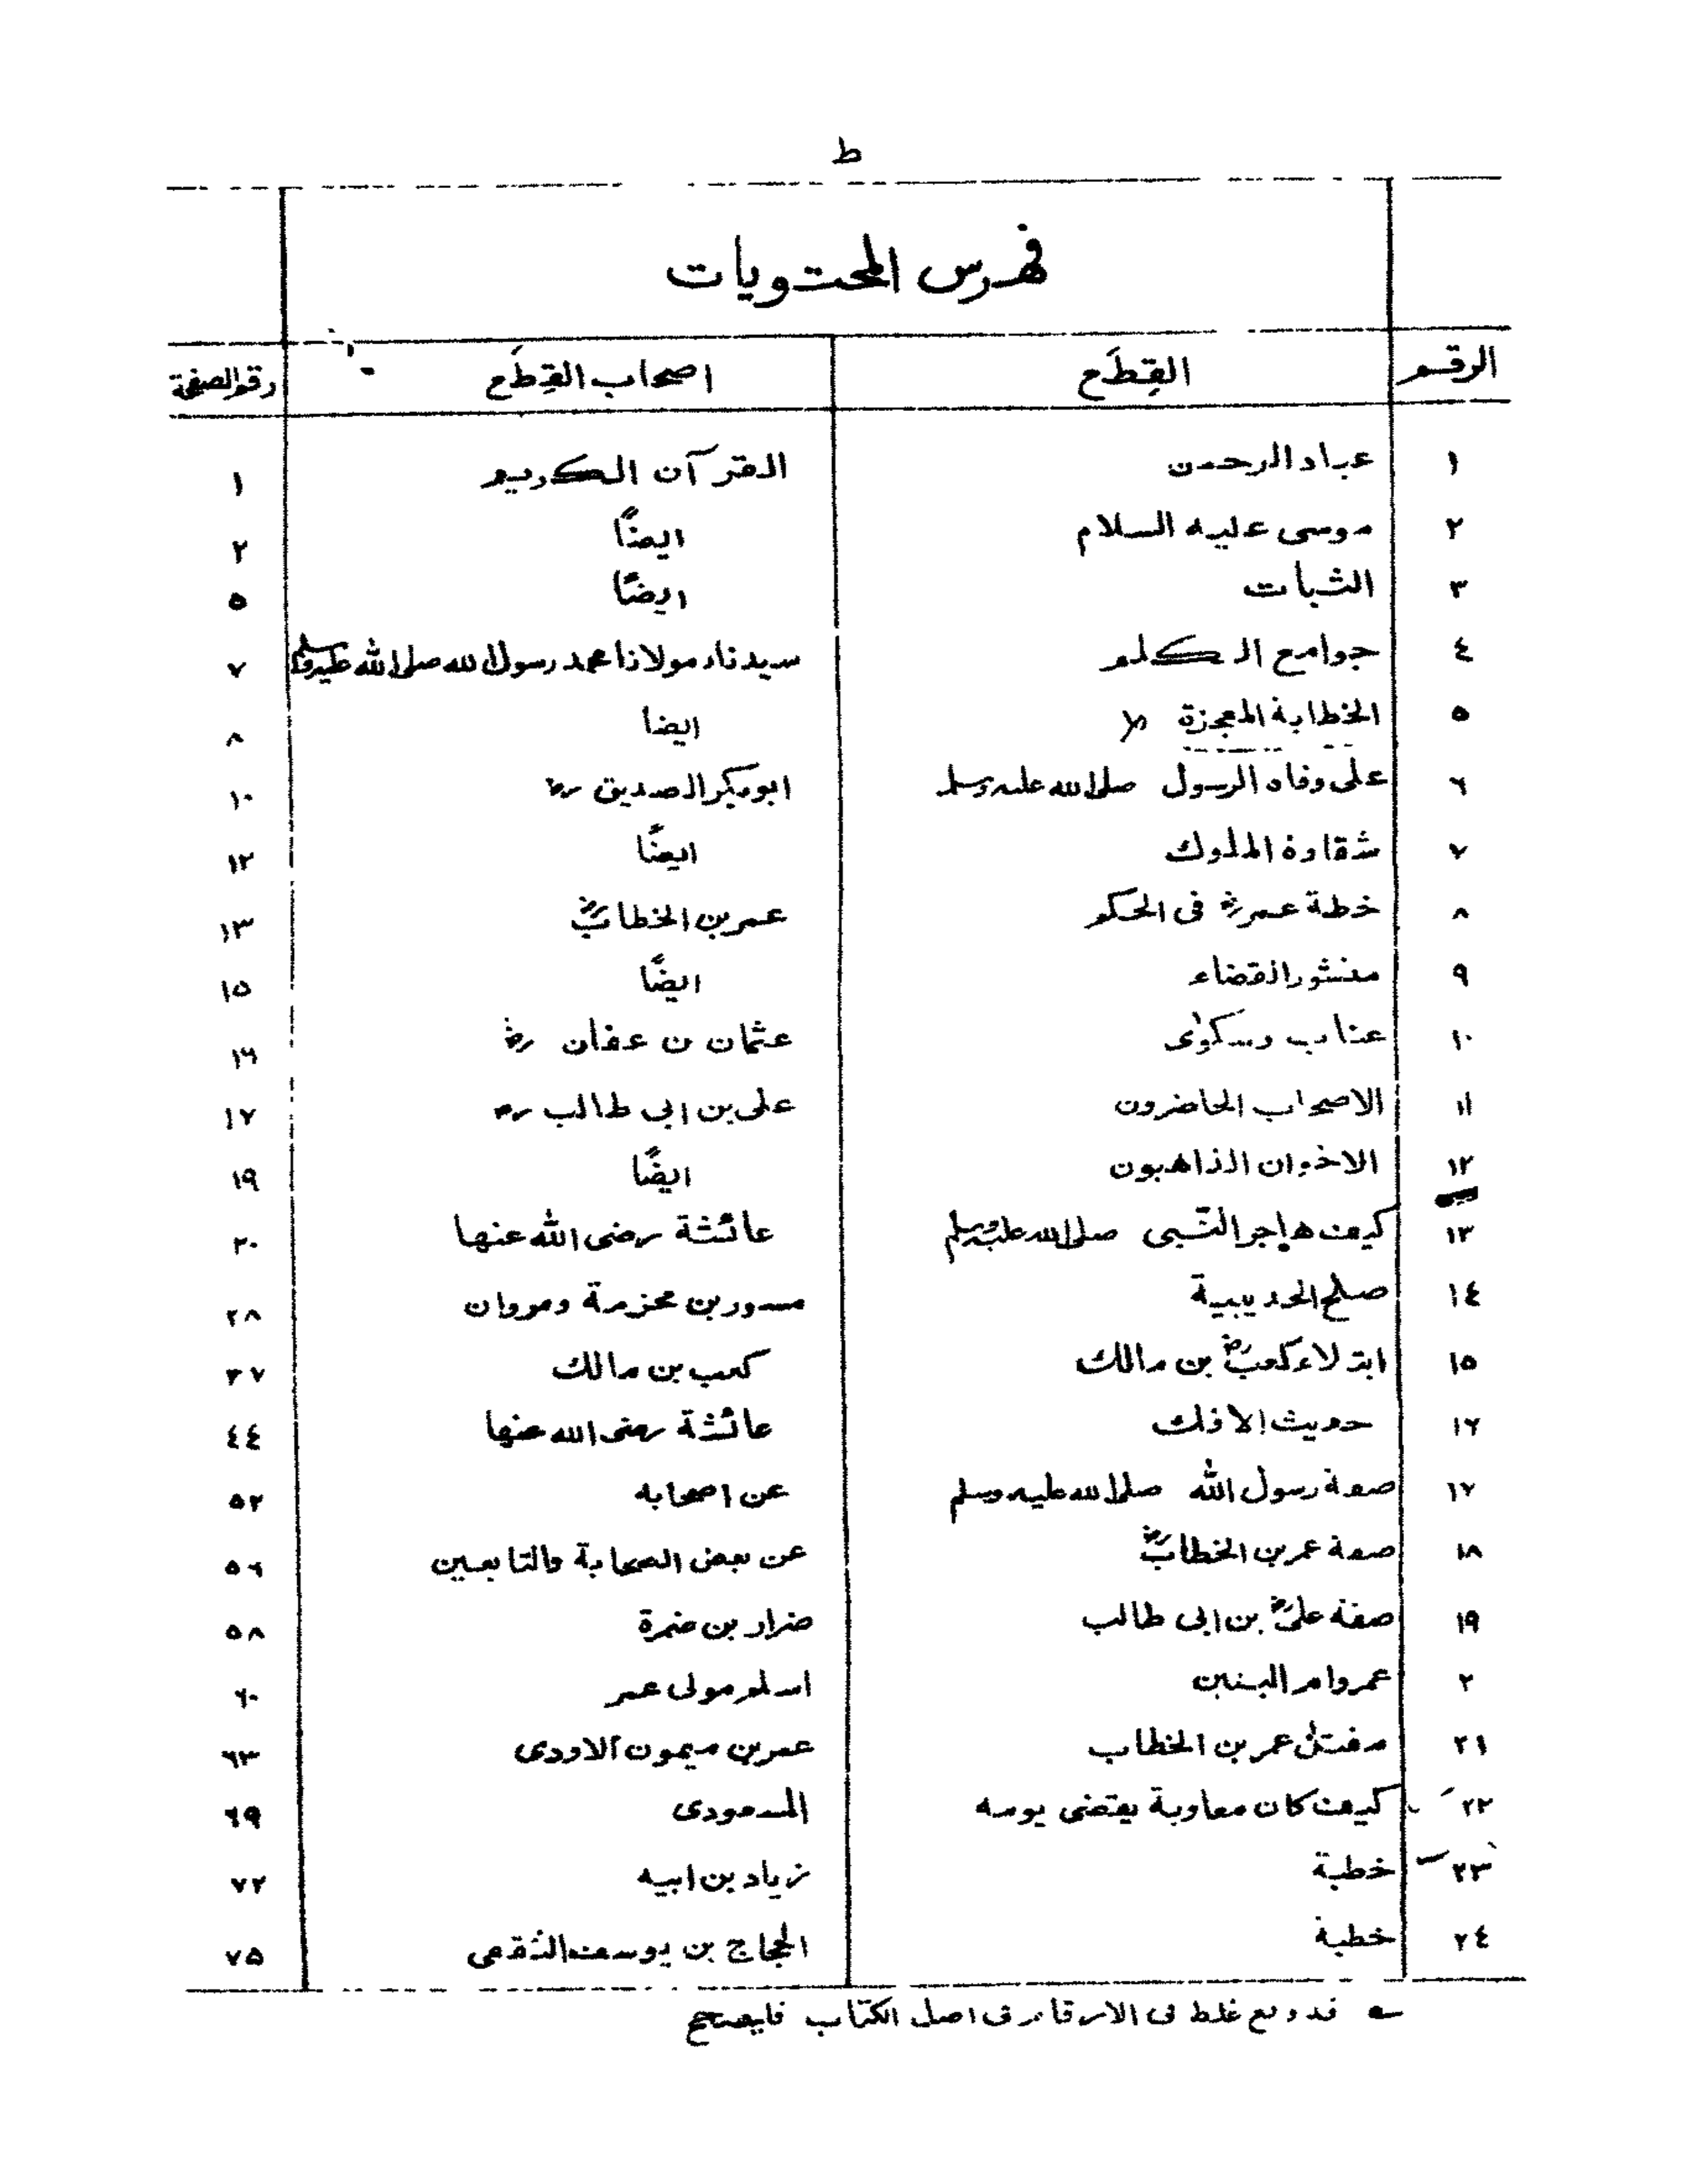 ط
فهرس المحتويات
الرقم القِطَع اصحاب القِطَع رقم الصفحة
١ عباد الرحمن القرآن الكريم ١
٢ موسى عليه السلام ايضًا ٢
٣ الثبات ايضًا ٥
٤ جوامع الكلم سيدنا ومولانا محمد رسول الله صلى الله عليه وسلم ٧
٥ الخطابة المعجزة ايضا ٨
٦ على وفاة الرسول صلى الله عليه وسلم ابوبكر الصديق رض ١٠
٧ شقاوة الملوك ايضًا ١٢
٨ خطة عمر رض فى الحكم عمر بن الخطاب رض ١٣
٩ منثور القضاء ايضًا ١٥
١٠ عتاب وشكوٰى عثمان بن عفان رض ١٦
١١ الاصحاب الحاضرون على بن ابى طالب رض ١٧
١٢ الاخوان الذاهبون ايضًا ١٩
١٣ كيف هاجر النّبى صلى الله عليه وسلم عائشة رضى الله عنها ٢٠
١٤ صلح الحديبية مسور بن مخزمة ومروان ٢٨
١٥ ابتلاء كعب رض بن مالك كعب بن مالك ٣٧
١٦ حديث الافك عائشة رضى الله عنها ٤٤
١٧ صفة رسول الله صلى الله عليه وسلم عن اصحابه ٥٢
١٨ صفة عمر بن الخطاب رض عن بعض الصحابة والتابعين ٥٦
١٩ صفة على رض بن ابى طالب ضرار بن ضمرة ٥٨
٢ عمر وام البنين اسلم مولى عمر ٦٠
٢١ مقتل عمر بن الخطاب عمر بن ميمون الاودى ٦٣
٢٢ كيف كان معاوية يقضى يومه المسعودى ٦٩
٢٣ خطبة زياد بن ابيه ٧٢
٢٤ خطبة الحجاج بن يوسف الثقفى ٧٥
قد وقع غلط فى الارقام فى اصل الكتاب فليصحح